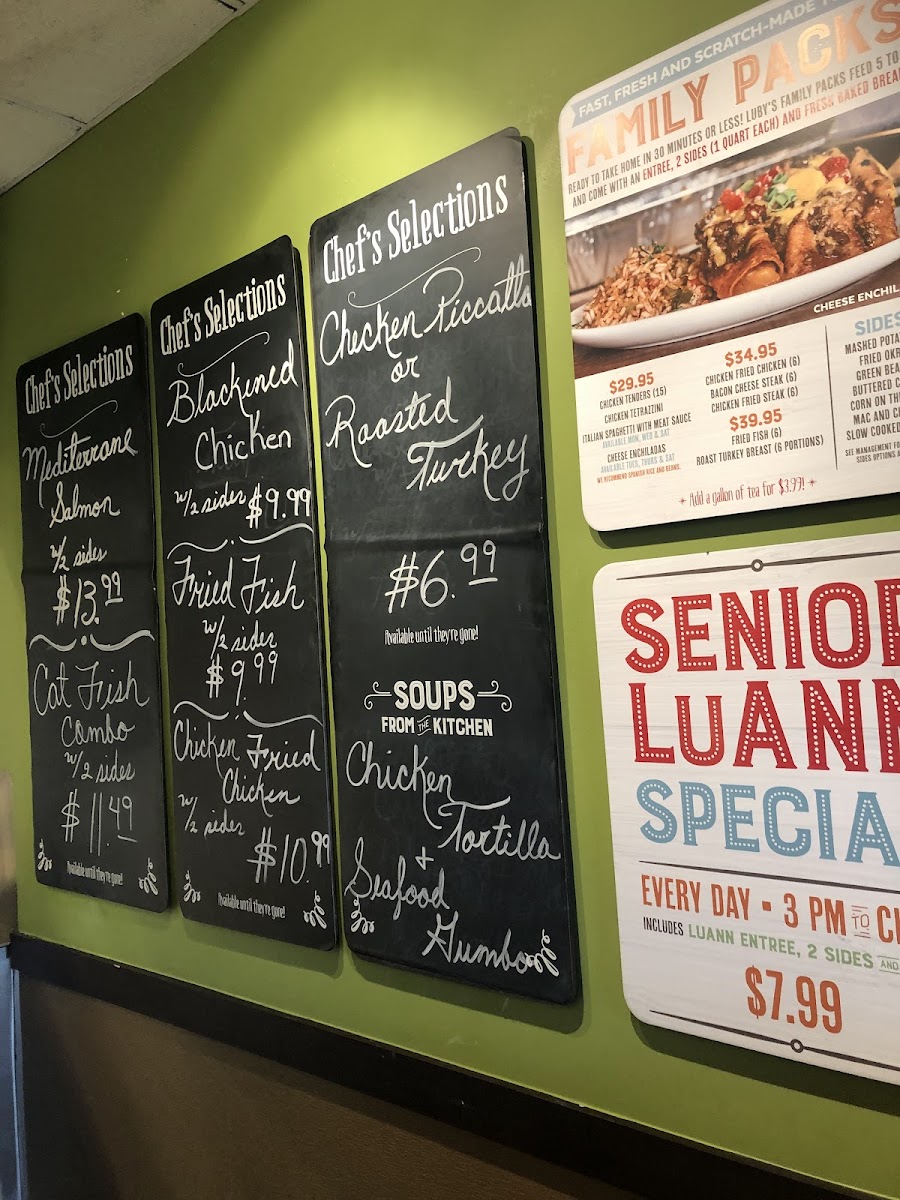 Chef's Selections
Mediterrane
Salmon
w/2 sides
$13.99
Cat Fish
Combo
w/2 sides
$11.49
Available until they're gone!
Chef's Selections
Blackined
Chicken
w/2 sides $9.99
Fried Fish
w/2 sides
$9.99
Chicken Fried
Chicken
w/2 sides
$10.99
Available until they're gone!
Chef's Selections
Checken Piccatta
or
Roasted
Turkey
$6.99
Available until they're gone!
SOUPS
FROM THE KITCHEN
Chicken
Tortilla
+
Seafood
Gumbo
FAST, FRESH AND SCRATCH-MADE
FAMILY PACKS
READY TO TAKE HOME IN 30 MINUTES OR LESS! LUBY'S FAMILY PACKS FEED 5 TO
AND COME WITH AN ENTREE, 2 SIDES (1 QUART EACH) AND FRESH BAKED
CHEESE
$29.95
CHICKEN TENDERS (15)
CHICKEN TETRAZZINI
ITALIAN SPAGHETTI WITH MEAT SAUCE
AVAILABLE MON, WED & SAT
CHEESE ENCHILADAS
AVAILABLE TUES, THURS & SAT
WE RECOMMEND SPANISH RICE AND BEANS.
$34.95
CHICKEN FRIED CHICKEN (6)
BACON CHEESE STEAK (6)
CHICKEN FRIED STEAK (6)
$39.95
FRIED FISH (6)
ROAST TURKEY BREAST (6 PORTIONS)
SIDES
MASHED
FRIED
GREEN
BUTTERED
CORN ON
MAC AND
SLOW COOKED
SEE MANAGEMENT
SIDES OPTIONS
Add a gallon of tea for $3.99!
SENIOR
LUANN
SPECIA
EVERY DAY - 3 PM TO
INCLUDES LUANN ENTREE, 2 SIDES AND
$7.99